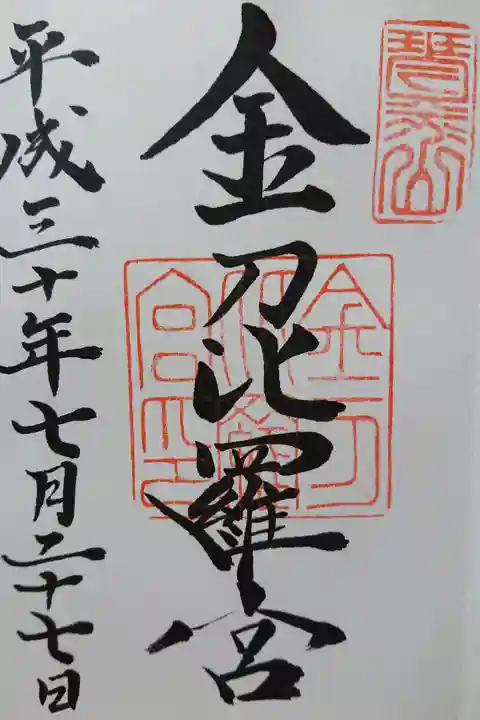 琴平山
金刀比羅宮
金刀比羅宮印
平成三十年七月二十七日